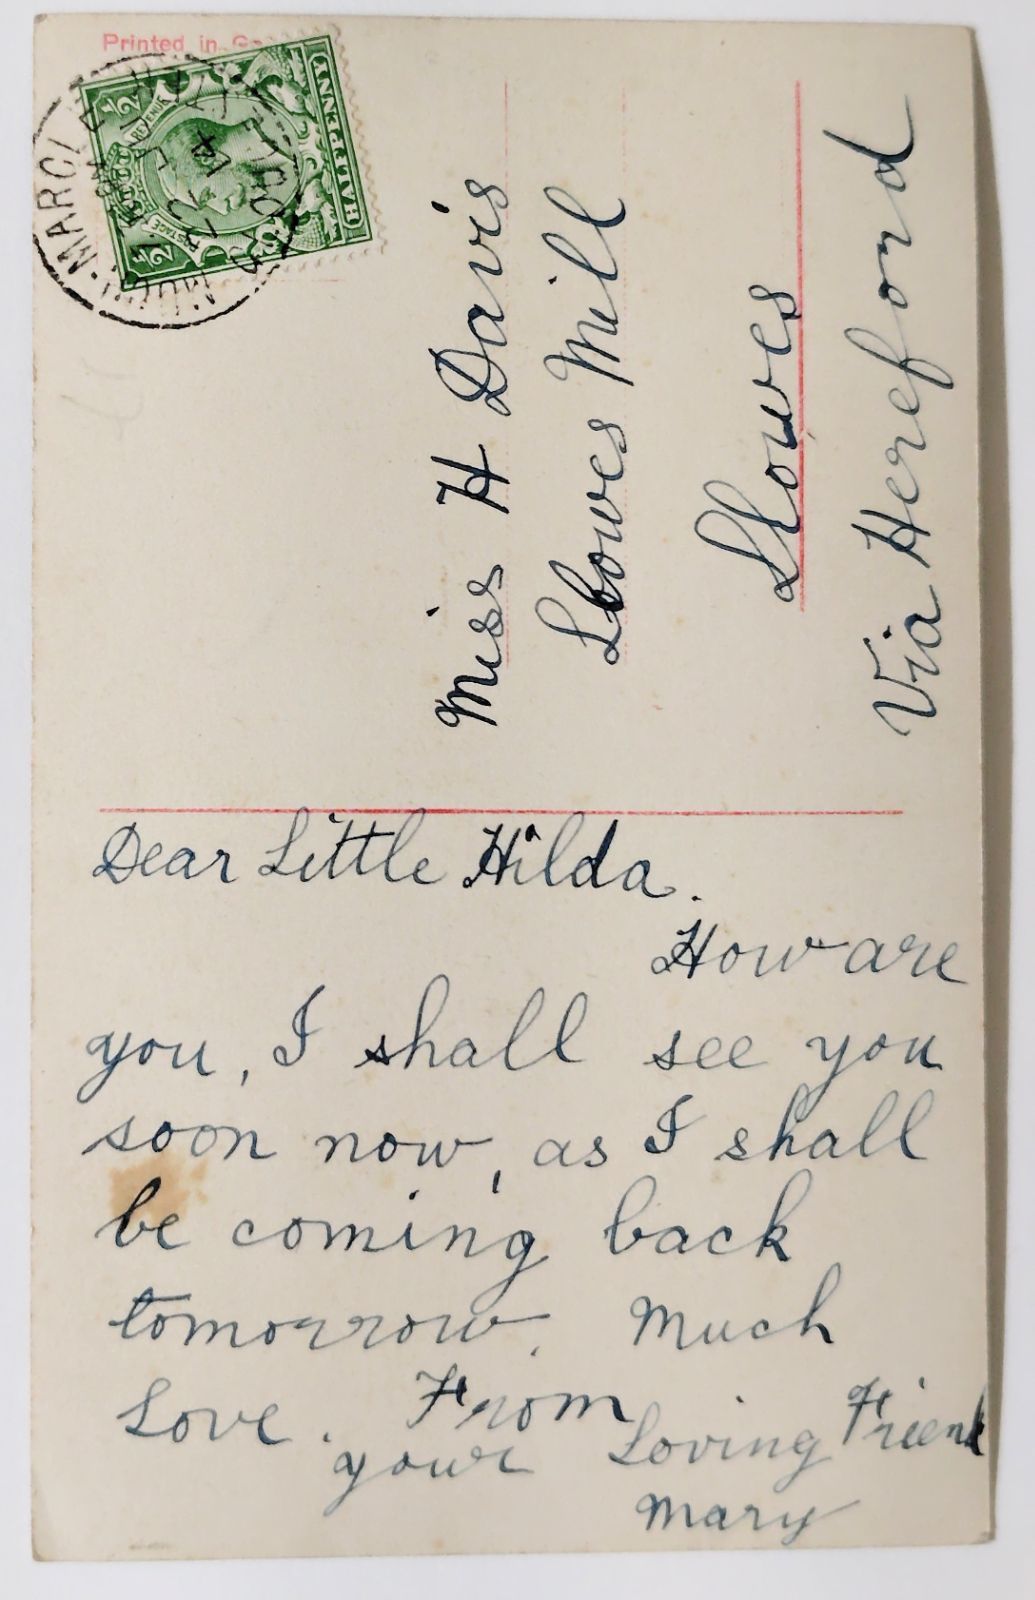 Printed in
HALFPENNY
POSTAGE
REVENUE
1/2
1/2
MARCLE
14
Miss H Davis
Llowes Mill
Llowes
Via Hereford
Dear Little Hilda.
How are
you, I shall see you
soon now, as I shall
be coming back
tomorrow. Much
Love. From
your Loving Friend
Mary